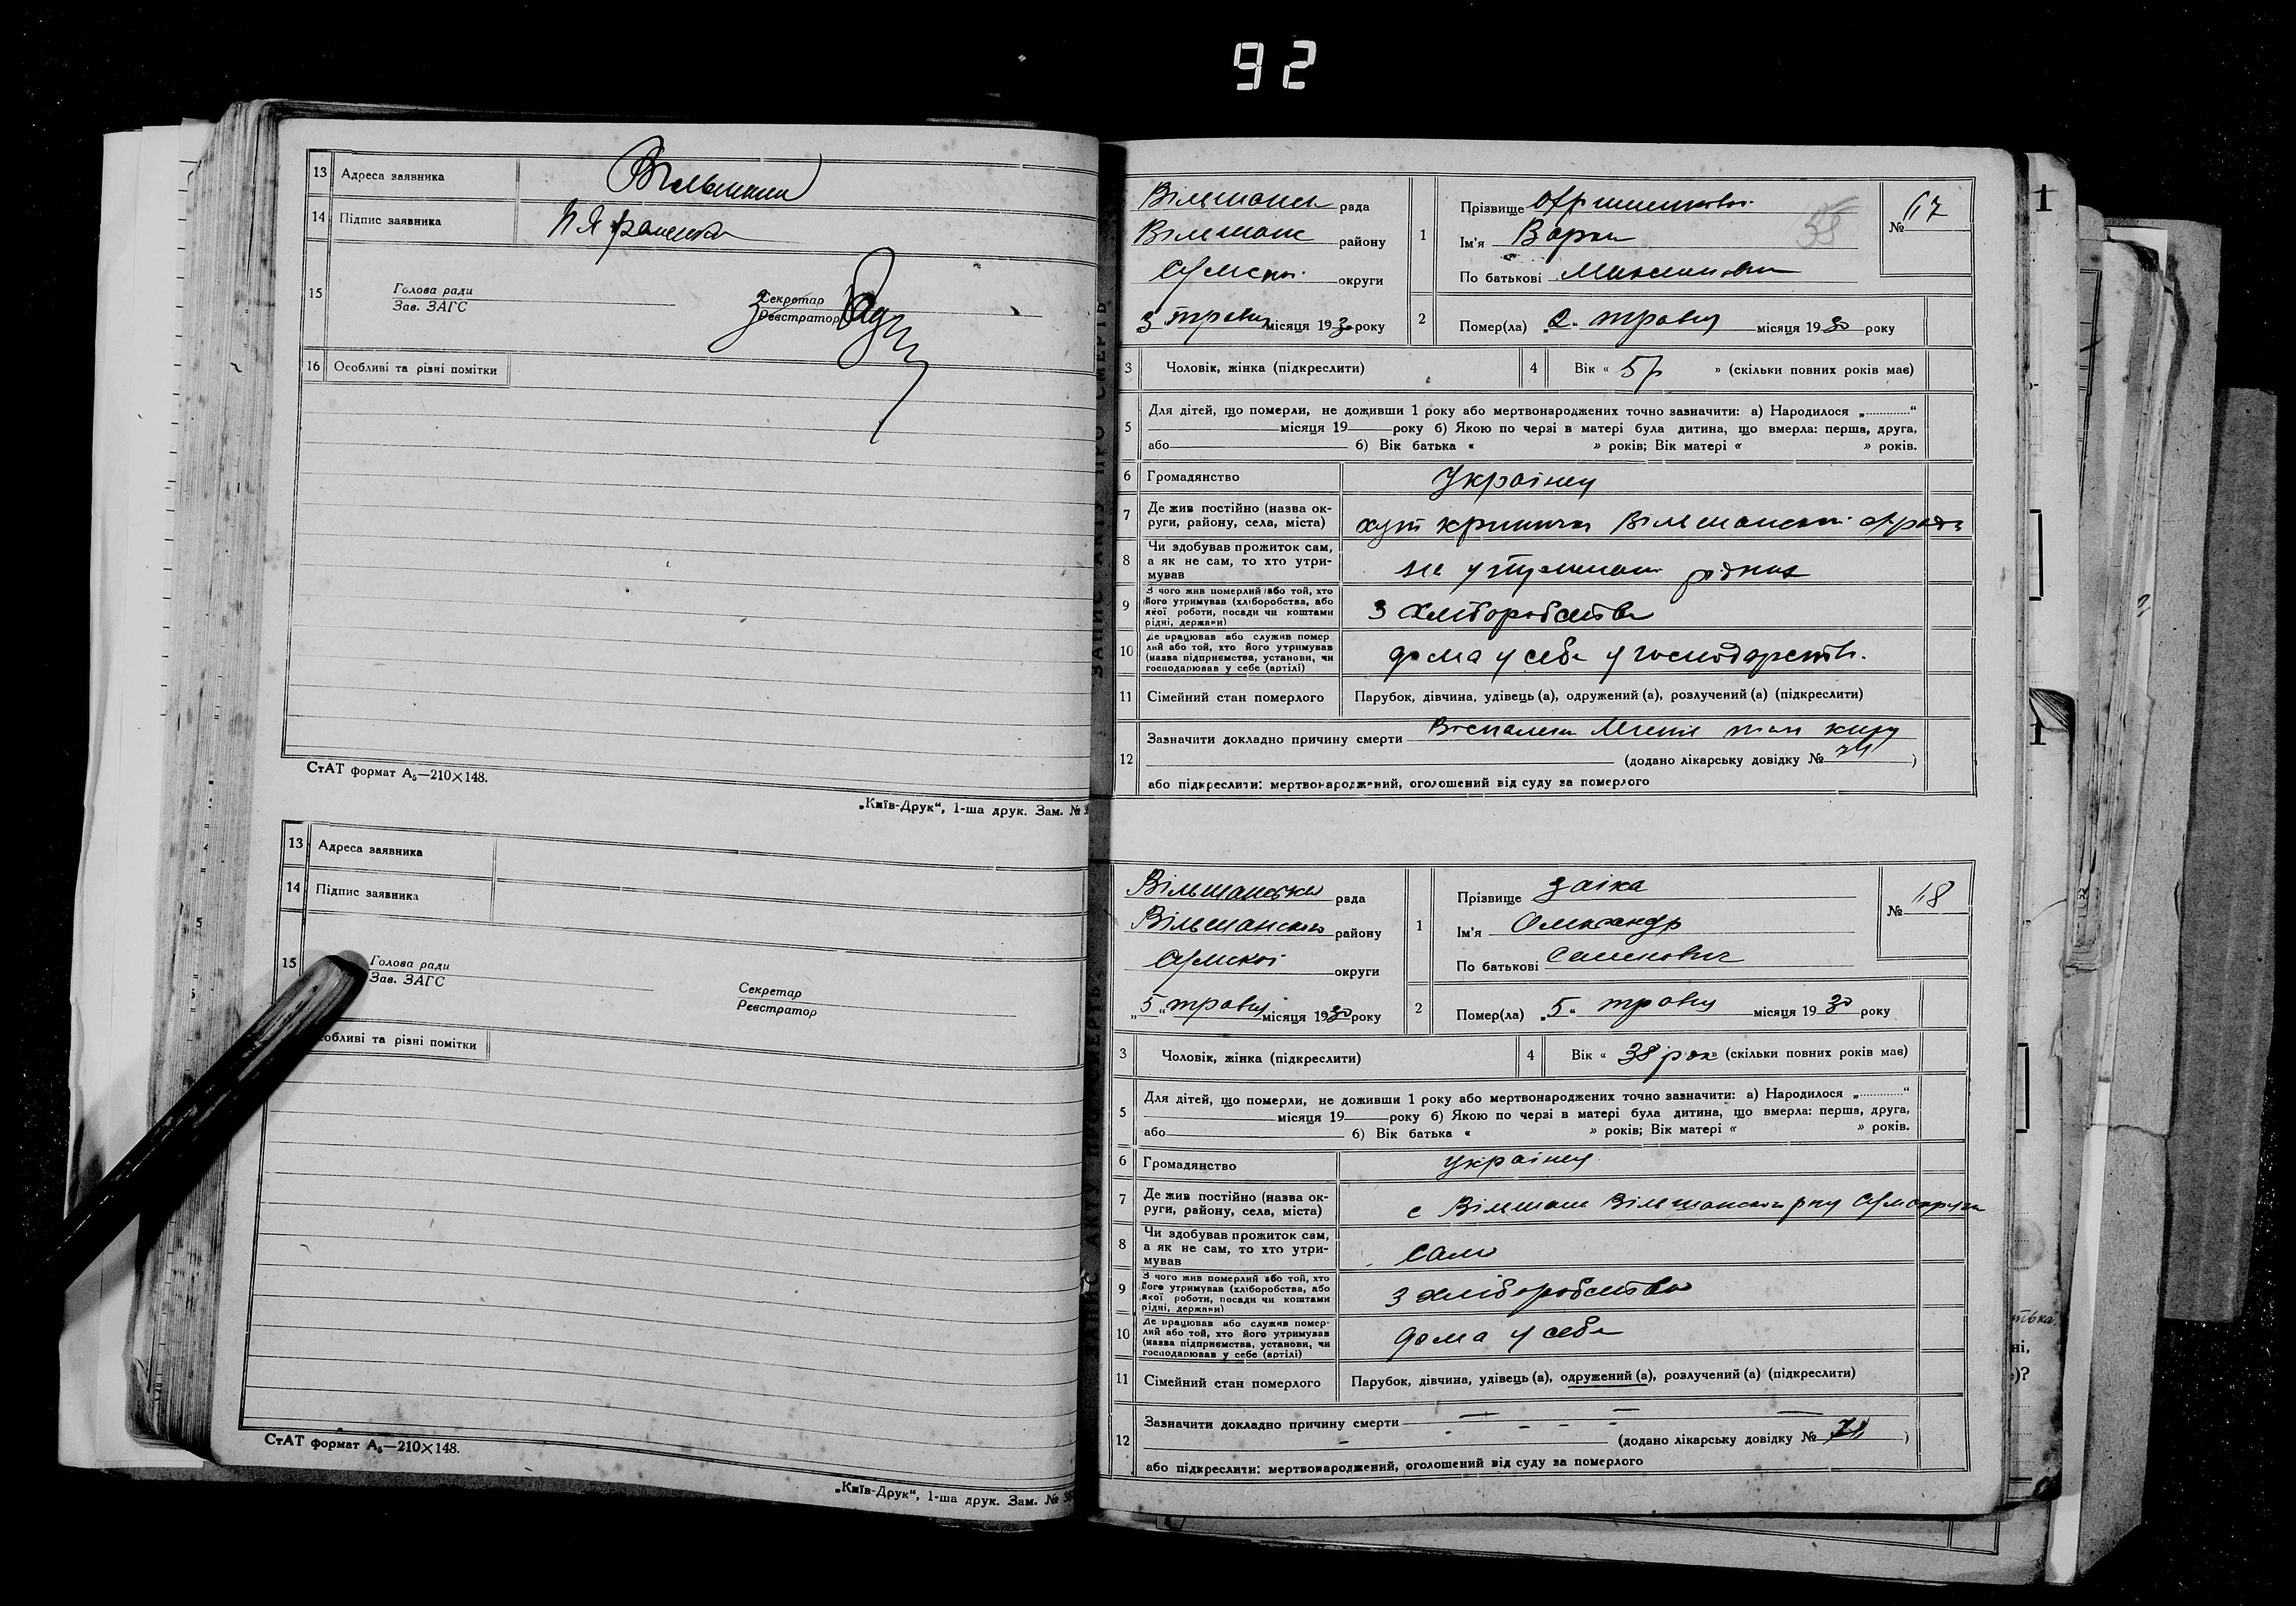 92
13 Адреса заявника Вільшани
14 Підпис заявника
15 Голова ради
Зав. ЗАГС
Секретар
Реєстратор
16 Особливі та різні помітки
СтАТ формат А₅—210×148.
„Київ-Друк“, 1-ша друк. Зам. №
13 Адреса заявника
14 Підпис заявника
15 Голова ради
Зав. ЗАГС
Секретар
Реєстратор
Особливі та різні помітки
СтАТ формат А₅—210×148.
„Київ-Друк“, 1-ша друк. Зам. №
ЗАПИС АКТУ ПРО СМЕРТЬ
Вільшанська рада
Вільшанс району
Сумської округи
3 травня місяця 1930 року
1 Прізвище
Ім'я Варка
По батькові
№ 67
2 Помер(ла) „2“ травня місяця 1930 року
3 Чоловік, жінка (підкреслити)
4 Вік « 5 р » (скільки повних років має)
5 Для дітей, що померли, не доживши 1 року або мертвонароджених точно зазначити: а) Народилося „..........“
місяця 19 року б) Якою по черзі в матері була дитина, що вмерла: перша, друга,
або б) Вік батька « » років; Вік матері « » років.
6 Громадянство Украінец
7 Де жив постійно (назва округи, району, села, міста) хут Вільшанськоі
8 Чи здобував прожиток сам, а як не сам, то хто утримував на утриман рідних
9 З чого жив померлий або той, хто його утримував (хліборобства, або якої роботи, посади чи коштами рідні, держави) з хліборобства
10 Де працював або служив померлий або той, хто його утримував (назва підприємства, установи, чи господарював у себе (артілі) дома у себе у господарстві
11 Сімейний стан померлого Парубок, дівчина, удівець (а), одружений (а), розлучений (а) (підкреслити)
12 Зазначити докладно причину смерти
(додано лікарську довідку № )
або підкреслити: мертвонароджений, оголошений від суду за померлого
Вільшанська рада
Вільшанського району
Сумскоі округи
„5“ травня місяця 1930 року
1 Прізвище Заіка
Ім'я Олександр
По батькові Семенович
№ 68
2 Помер(ла) „5“ травня місяця 1930 року
3 Чоловік, жінка (підкреслити)
4 Вік « 38 рок » (скільки повних років має)
5 Для дітей, що померли, не доживши 1 року або мертвонароджених точно зазначити: а) Народилося „..........“
місяця 19 року б) Якою по черзі в матері була дитина, що вмерла: перша, друга,
або б) Вік батька « » років; Вік матері « » років.
6 Громадянство украінец
7 Де жив постійно (назва округи, району, села, міста) с Вільшани Вільшанского р-ну Сумокруги
8 Чи здобував прожиток сам, а як не сам, то хто утримував сам
9 З чого жив померлий або той, хто його утримував (хліборобства, або якої роботи, посади чи коштами рідні, держави) з хліборобства
10 Де працював або служив померлий або той, хто його утримував (назва підприємства, установи, чи господарював у себе (артілі) дома у себе
11 Сімейний стан померлого Парубок, дівчина, удівець (а), одружений (а), розлучений (а) (підкреслити)
12 Зазначити докладно причину смерти
(додано лікарську довідку № )
або підкреслити: мертвонароджений, оголошений від суду за померлого